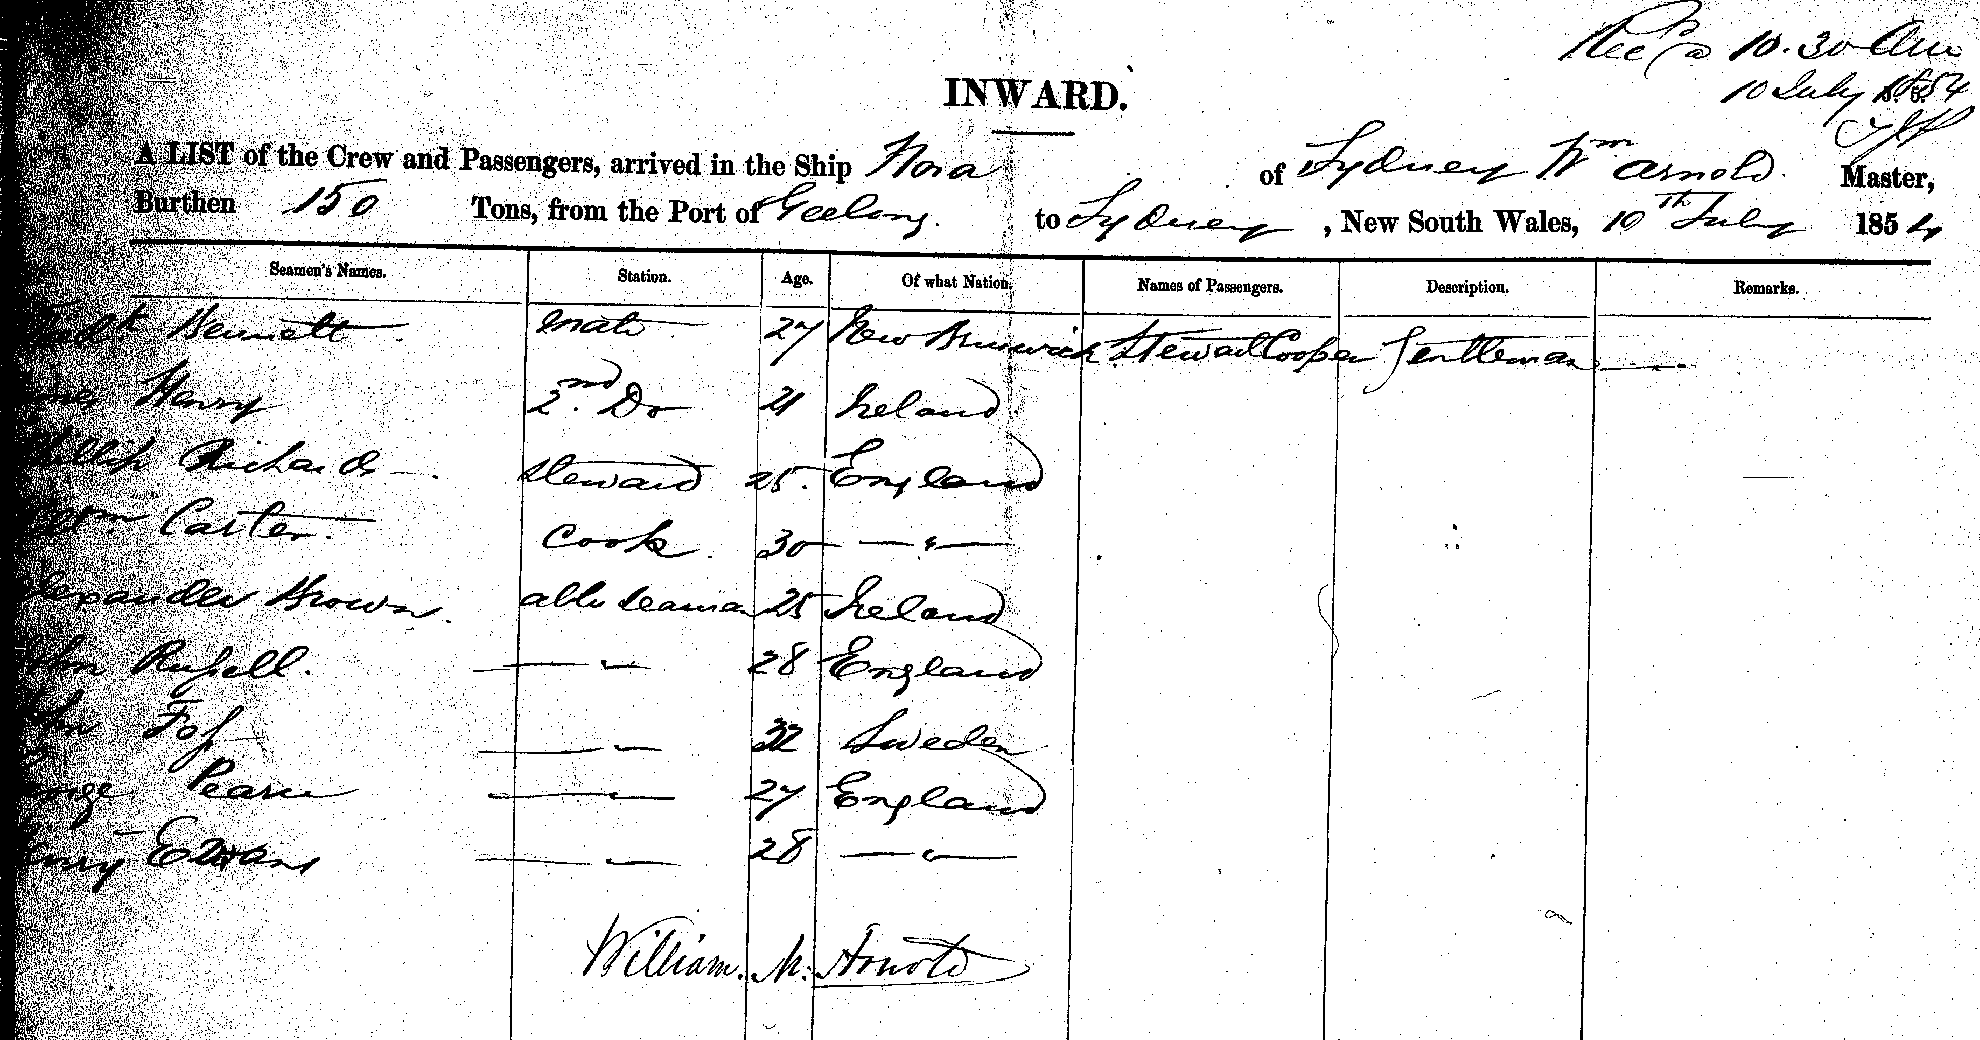 Recd 10.30 Am
10 July 1854
INWARD.
A LIST of the Crew and Passengers, arrived in the Ship Nora of Sydney Wm Arnold Master,
Burthen 150 Tons, from the Port of Geelong. to Sydney, New South Wales, 10th July 1854
Seamen's Names. Station. Age. Of what Nation. Names of Passengers. Description. Remarks.
Bennett mate 27 New Brunswick Steward Cooper Gentleman
Henry 2nd Do 21 Ireland
Richards Steward 25. England
Wm Carter. Cook 30 — " —
Alexander Brown. able seaman 25 Ireland
John Russell. — " 28 England
John Fos — " — 32 Sweden
George Pearce — " — 27 England
Henry Edwans — " — 28 — " —
William. M. Arnold